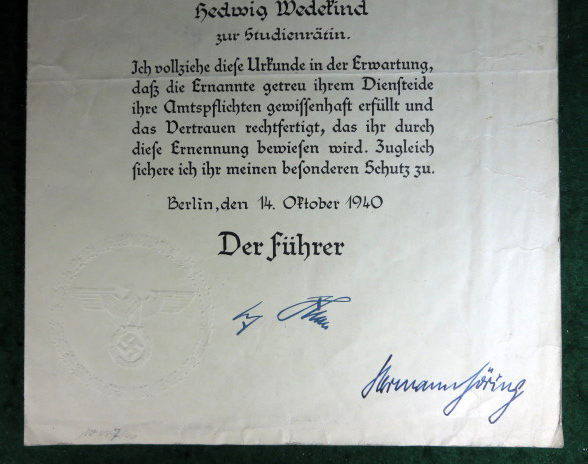 Hedwig Wedekind
zur Studienrätin.
Ich vollziehe diese Urkunde in der Erwartung,
daß die Ernannte getreu ihrem Diensteide
ihre Amtspflichten gewissenhaft erfüllt und
das Vertrauen rechtfertigt, das ihr durch
diese Ernennung bewiesen wird. Zugleich
sichere ich ihr meinen besonderen Schutz zu.
Berlin, den 14. Oktober 1940
Der Führer
Hermann Göring